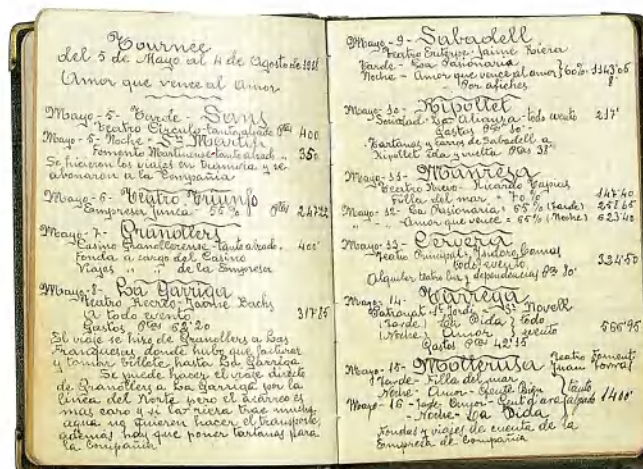 Tournée
del 5 de Mayo al 4 de Agosto de
Amor que vence al Amor
Mayo-5- Tarde - Sans
Teatro Círculo - tanto alzado Ptas 400
Mayo-5- Noche - Sn Martín
Fomento Martinense - tanto alzado " 350
Se hicieron los viajes en tranvía y se
abonaron a la Compañía
Mayo-6- Teatro Triunfo
Empresa Junca - 55% Ptas
Mayo-7- Granollers
Casino Granollerense - tanto alzado. 400'
Fonda a cargo del Casino
Viajes " " de la Empresa
Mayo-8- La Garriga
Teatro Recreo - Jaime Bachs
A todo evento 317'85
Gastos Ptas 62'20
El viaje se hizo de Granollers a Las
Franquesas donde hubo que facturar
y tomar billete hasta La Garriga
Se puede hacer el viaje directo
de Granollers a La Garriga por la
línea del Norte pero el acarreo es
mas caro y si la riera trae mucha
agua no quieren hacer el transporte,
además hay que poner tartanas para
la Compañía
Mayo-9- Sabadell
Teatro Euterpe - Jaime Riera
Tarde - La Pasionaria
Noche - Amor que vence al amor } 60% 1143'05
Por afiches 8'
Mayo-10- Ripollet
Sociedad La Alianza - todo evento 217'
Gastos Ptas 50'
Tartanas y carros de Sabadell a
Ripollet ida y vuelta Ptas 38'
Mayo-11- Manresa
Teatro Nuevo - Ricardo Tapias
Filla del mar = 70% 147'40
Mayo-12- La Pasionaria = 65% (Tarde) 251'65
" " - Amor que vence = 65% (Noche) 623'45
Mayo-13- Cervera
Teatro Principal - Isidoro Comas
todo evento 324'50
Alquiler teatro luz y dependencias Ptas 80'
Mayo-14- Tárrega
Patronat St Jordi - Novell
(Tarde) La Dida } todo
(Noche) Amor } evento 566'95
Gastos Ptas 42'15
Mayo-15- Mollerusa Teatro Fomento
Tarde - Filla del mar Juan
Noche - Amor - Gente Bien } tanto
Mayo-16- Tarde - Amor - Gent d'ara } alzado 1400'
Noche - La Dida
Fondas y viajes de cuenta de la
Empresa de Compañía